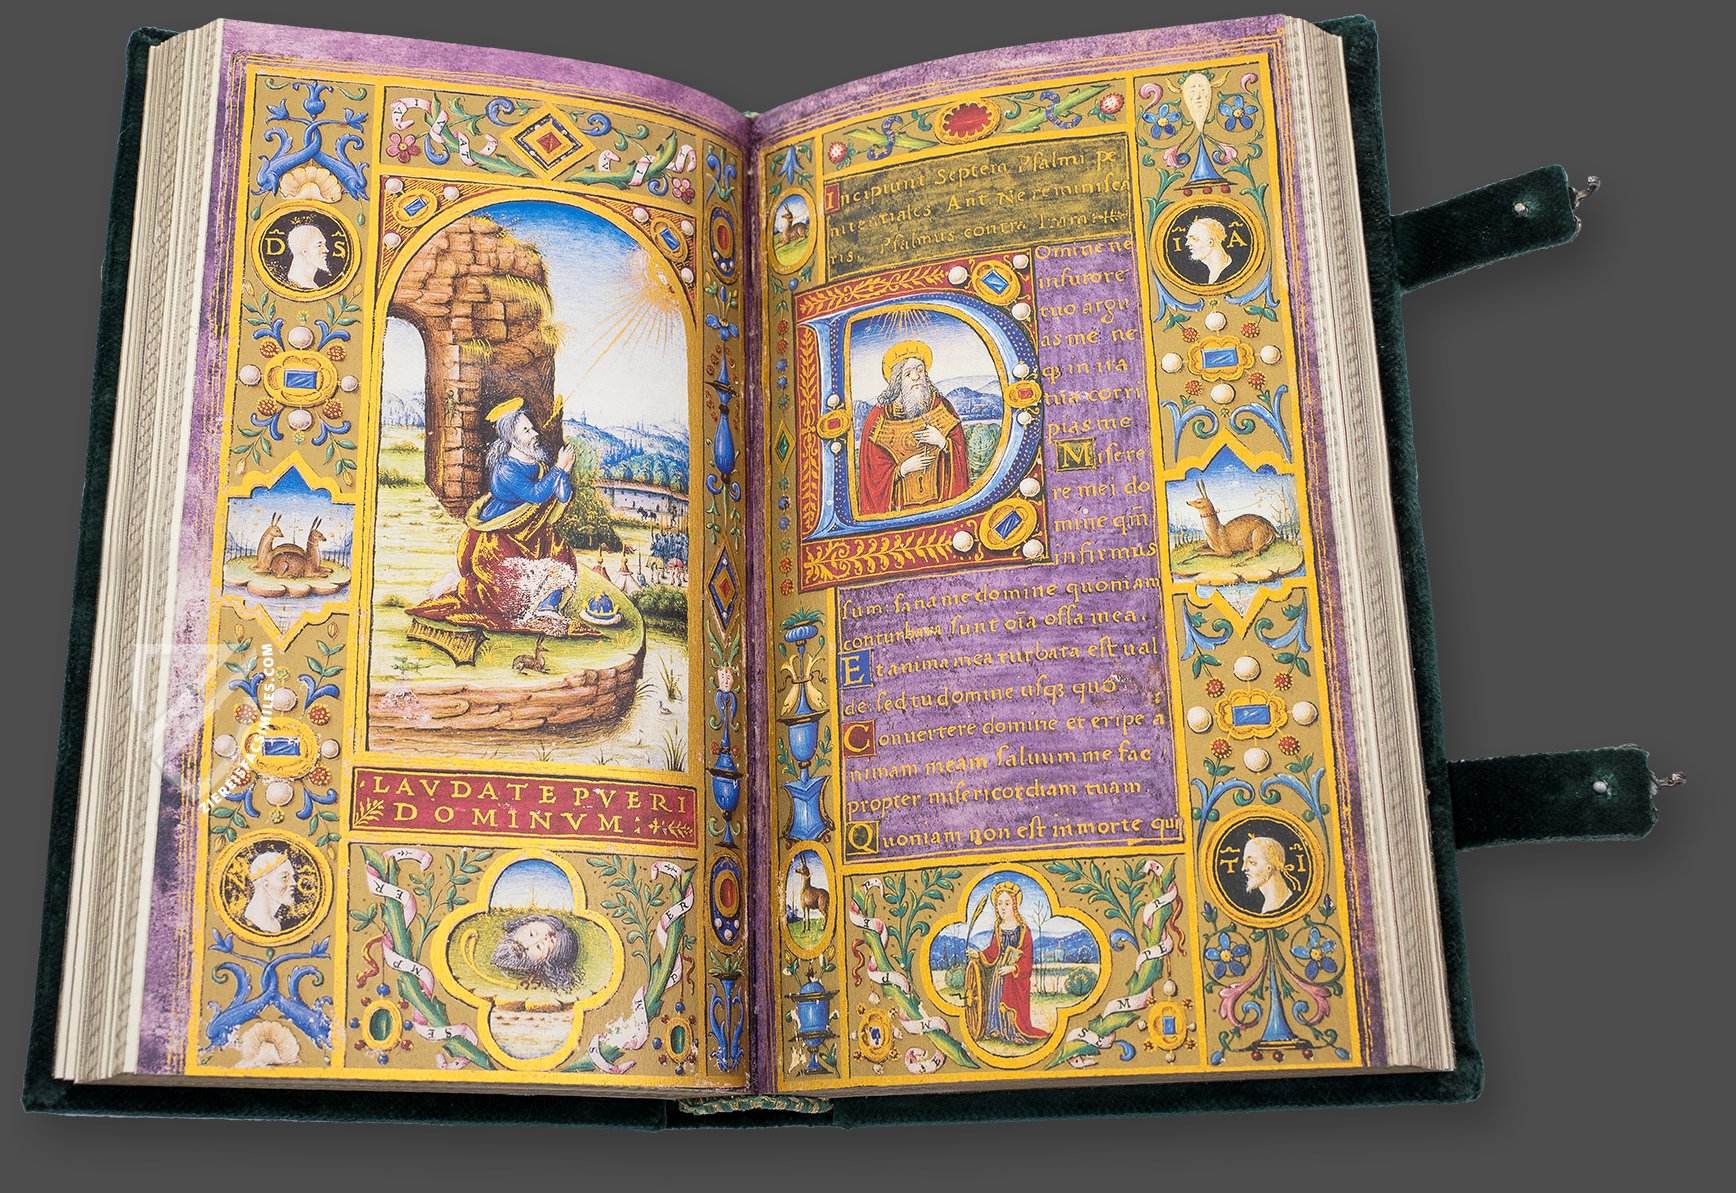 D S
LAVDATE PVERI
DOMINVM
SEMPER
SEMPER
ZIEREIS FACSIMILES.COM
Incipiunt Septem Psalmi pe
nitentiales Ant Ne reminisca
ris. Psalmus contra Iram
Domine ne
in furore
tuo argu
as me ne
q3 in ira
tua corri
pias me
Misere
re mei do
mine qm̄
infirmus
sum: sana me domine quoniam
conturbata sunt oīa ossa mea.
Et anima mea turbata est ual
de: sed tu domine usq3 quo
Conuertere domine et eripe a
nimam meam saluum me fac
propter misericordiam tuam.
Quoniam non est in morte qui
I A
T I
SEMPER